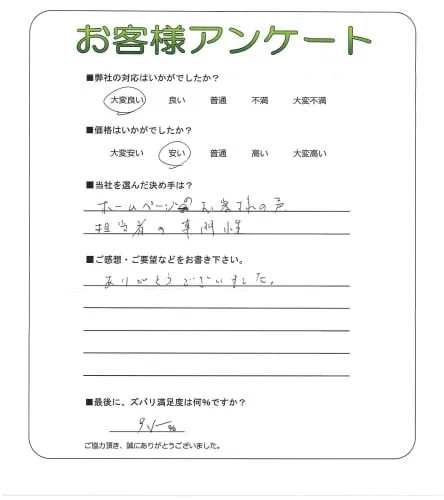 お客様アンケート
■弊社の対応はいかがでしたか?
大変良い 良い 普通 不満 大変不満
■価格はいかがでしたか?
大変安い 安い 普通 高い 大変高い
■当社を選んだ決め手は?
ホームページのお客様の声
担当者の専門性
■ご感想・ご要望などをお書き下さい。
ありがとうございました。
■最後に、ズバリ満足度は何%ですか?
%
ご協力頂き、誠にありがとうございました。